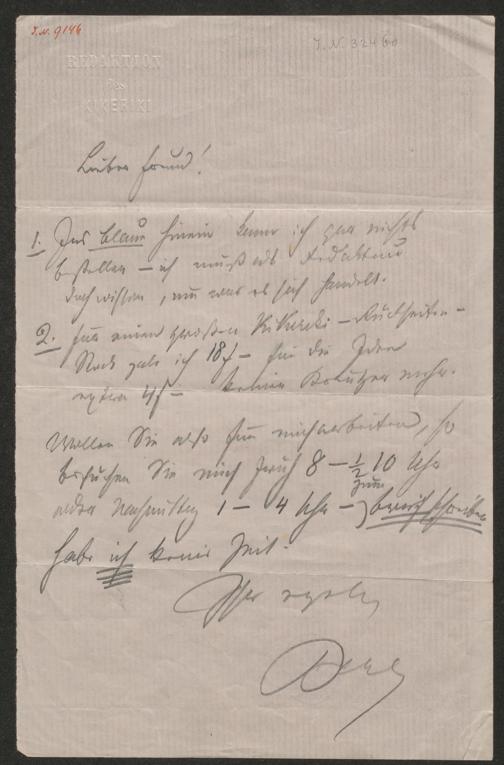 J.N. 9146
J.N. 32460
REDAKTION
des
KIKERIKI
Lieber Freund!
1. Ins blaue hinein kann ich gar nichts
bestellen – ich muß als Redakteur
doch wissen, um was es sich handelt.
2. Für einen großen Kikeriki-Rückseiten-
Stock gebe ich 18f – für die Idee
extra 4f – keinen Kreutzer mehr.
Wollen Sie also für mich arbeiten, so
besuchen Sie mich früh 8 – ½ 10 Uhr
oder Nachmittag 1 – 4 Uhr – zum briefschreiben
habe ich keine Zeit.
Ihr